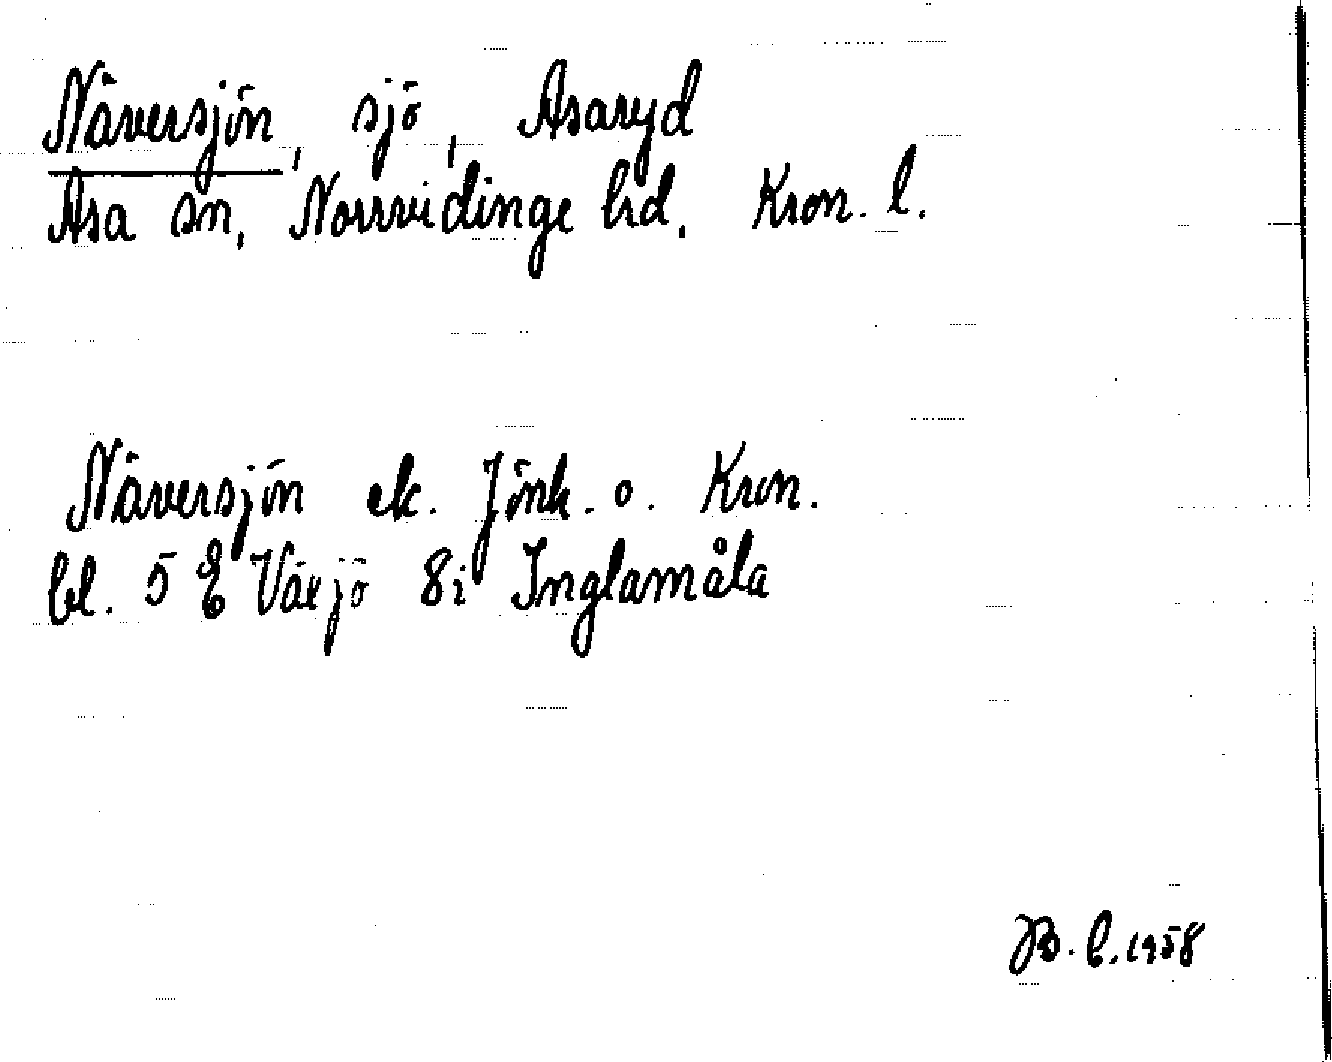 Näversjön, sjö, Asaryd
Asa sn, Norrvidinge hd. Kron. l.
Näversjön ek. Jönk. o. Kron.
bl. 5 E Växjö 8i Inglamåla
B. 1958